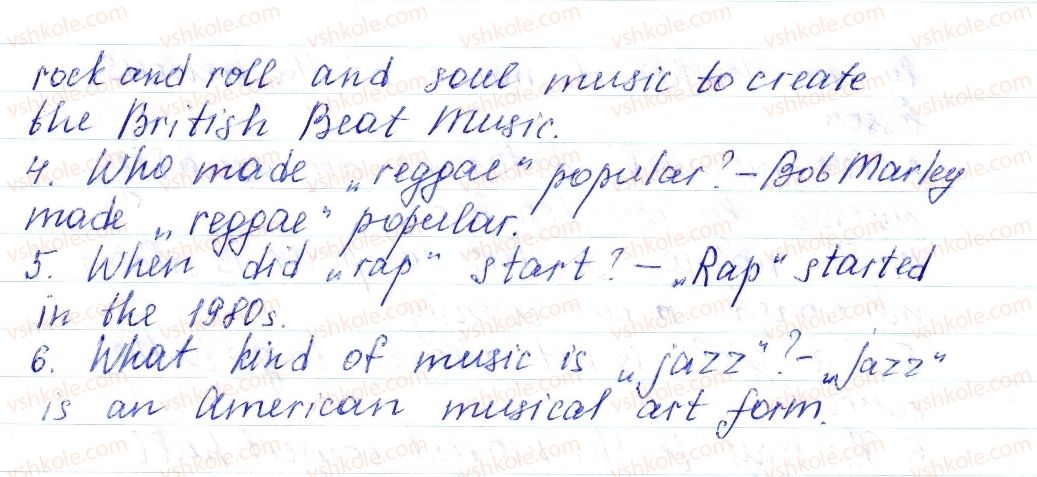 rock and roll and soul music to create
the British Beat Music.
4. Who made „reggae“ popular? – Bob Marley
made „reggae“ popular.
5. When did „rap“ start? – „Rap“ started
in the 1980s.
6. What kind of music is „jazz“? – „jazz“
is an American musical art form.